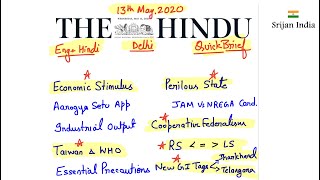 13th May, 2020
Srijan India
THE HINDU
Eng + Hindi
Delhi
Quick Brief
Economic Stimulus
Perilous State
Aarogya Setu App
JAM MNREGA Cond.
Industrial Output
Cooperative Federalism
Taiwan & WHO
RS < = > LS
Essential Precautions
New GI Tags
Jharkhand
Telangana